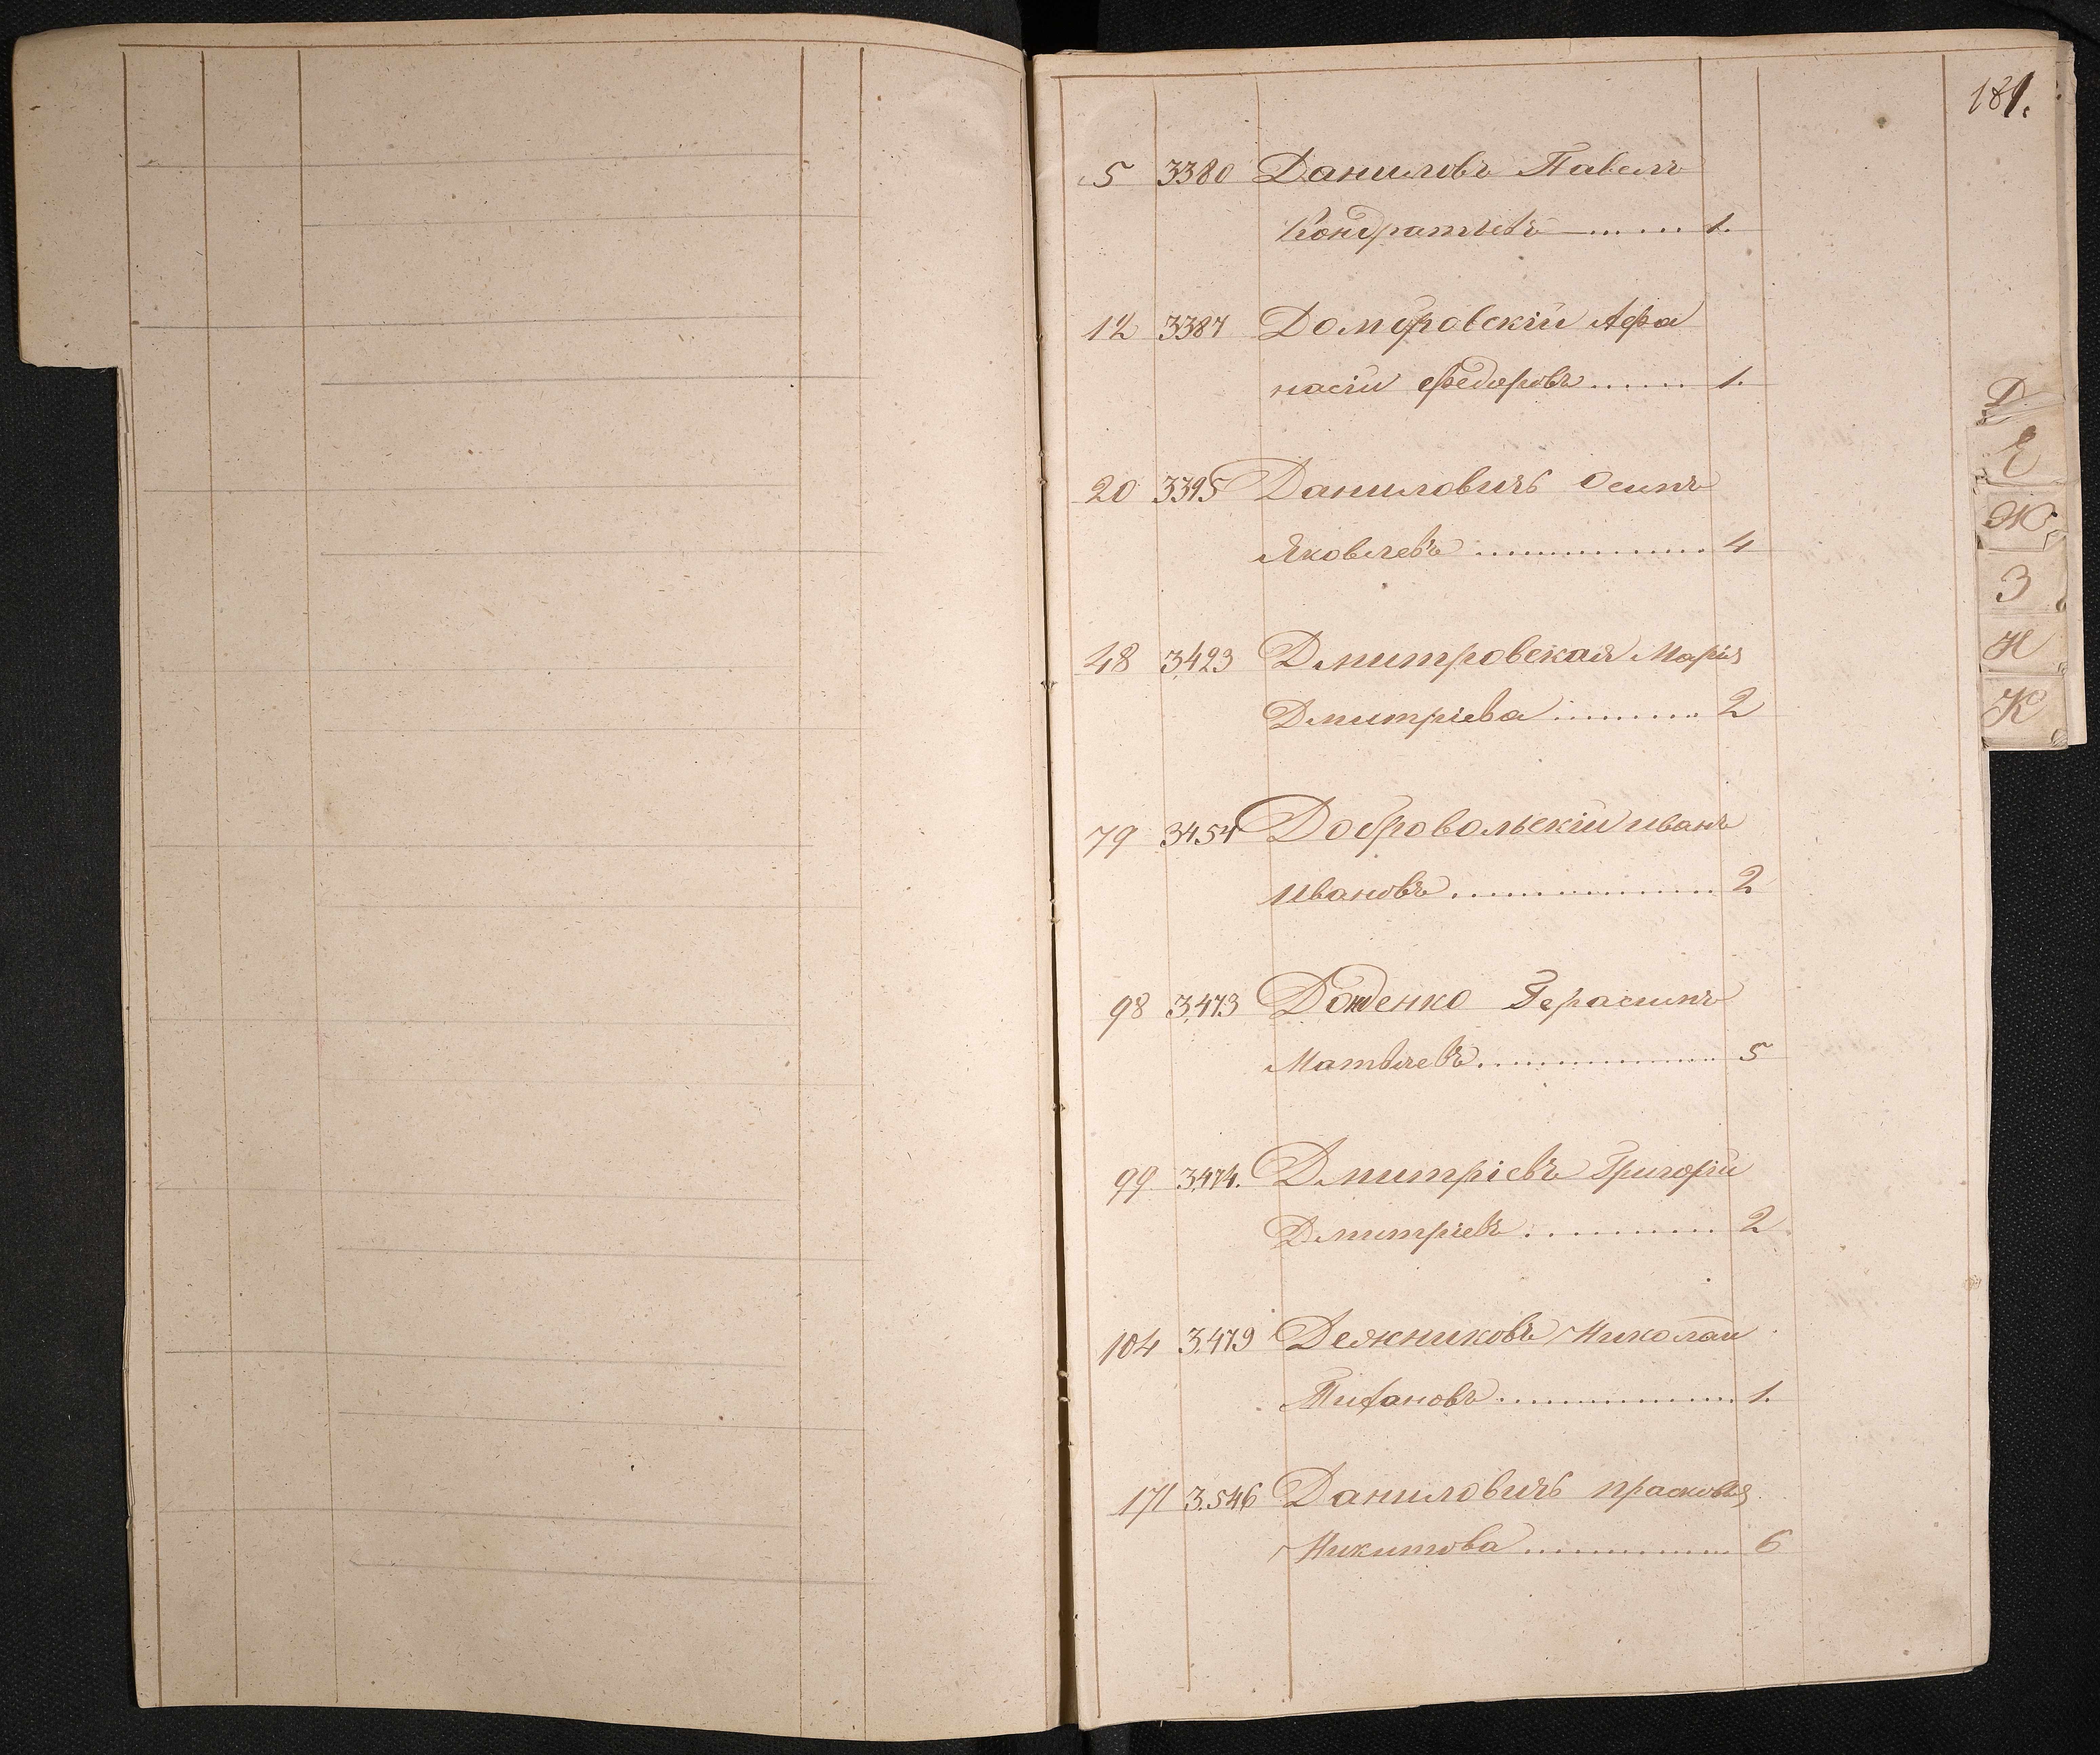 181.
5 3380 Даниловъ Павелъ
Кондратьевъ ........ 1.
12 3387 Домбровскій Афа
насій Федоровъ ...... 1.
20 3395 Даниловичъ Осипъ
Яковлевъ ............... 4
48 3423 Дмитровская Марія
Дмитріева .......... 2
79 3454 Добровольскій Иванъ
Ивановъ ................. 2
98 3.473 Герасимъ
Матвѣевъ ................. 5
99 3474. Дмитріевъ Григорій
Дмитріевъ ............ 2
104 3.479 Дежниковъ Николай
................ 1.
171 3.546 Даниловичъ Прасковья
Никитова ............... 6
Д
Е
Ж
З
И
К